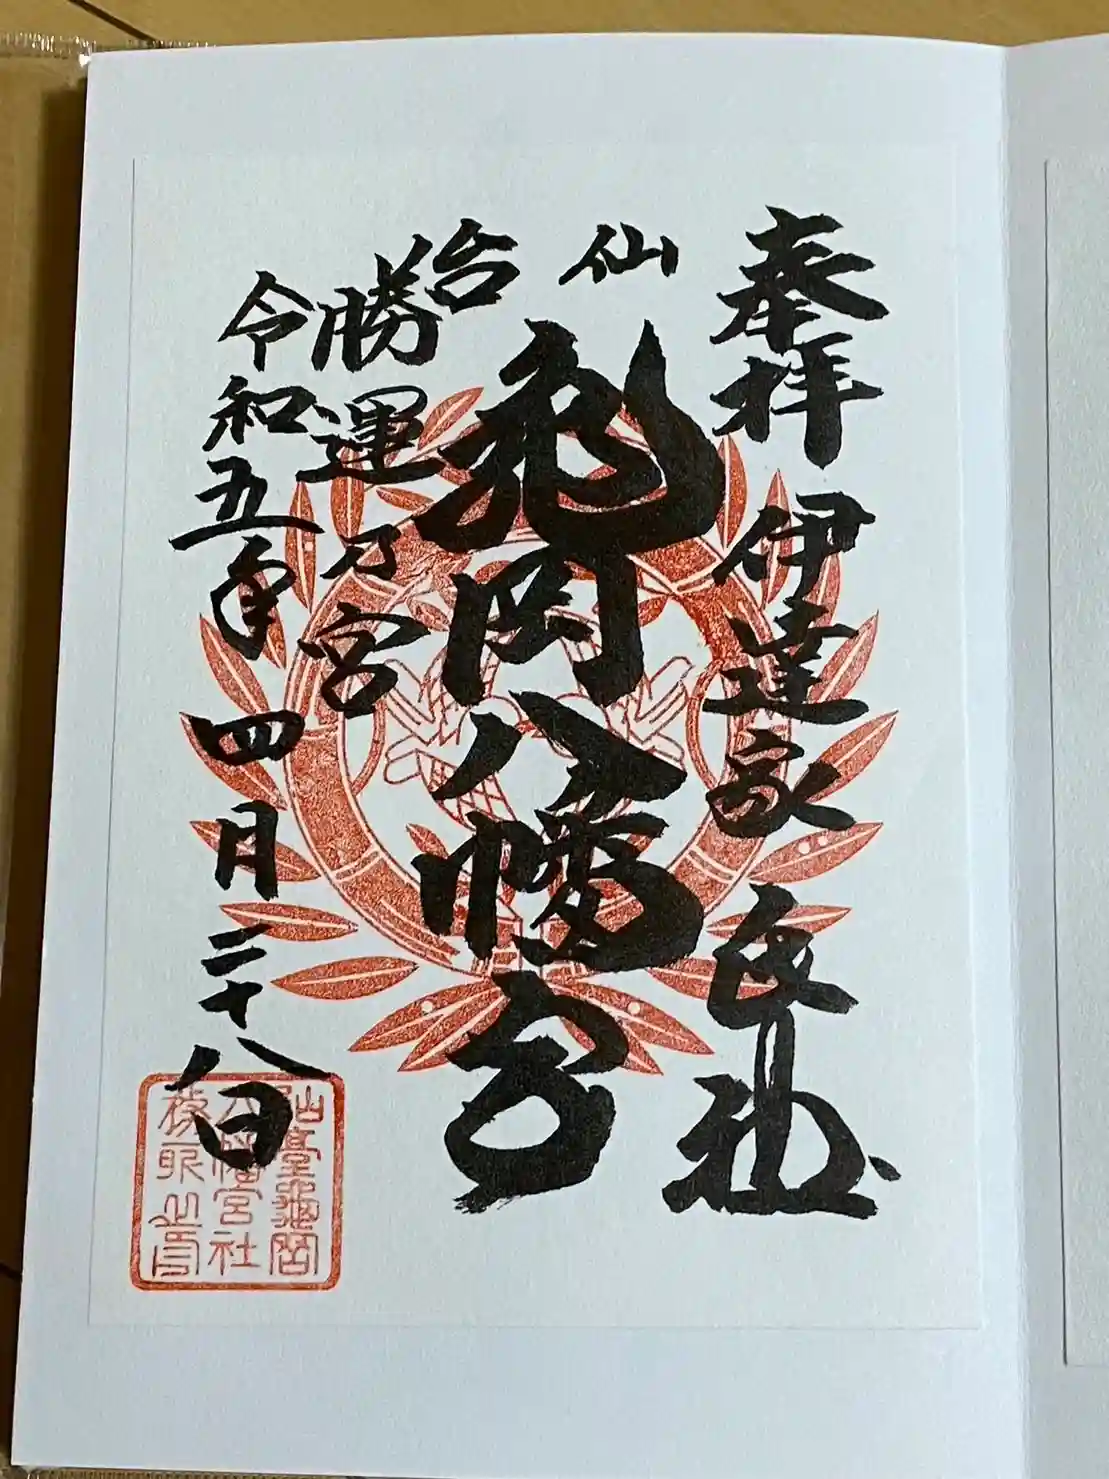 奉拝 伊達家 氏神
仙台
亀岡八幡宮
勝運乃宮
令和五年四月二十八日
仙臺龜岡
八幡宮社
務所之印